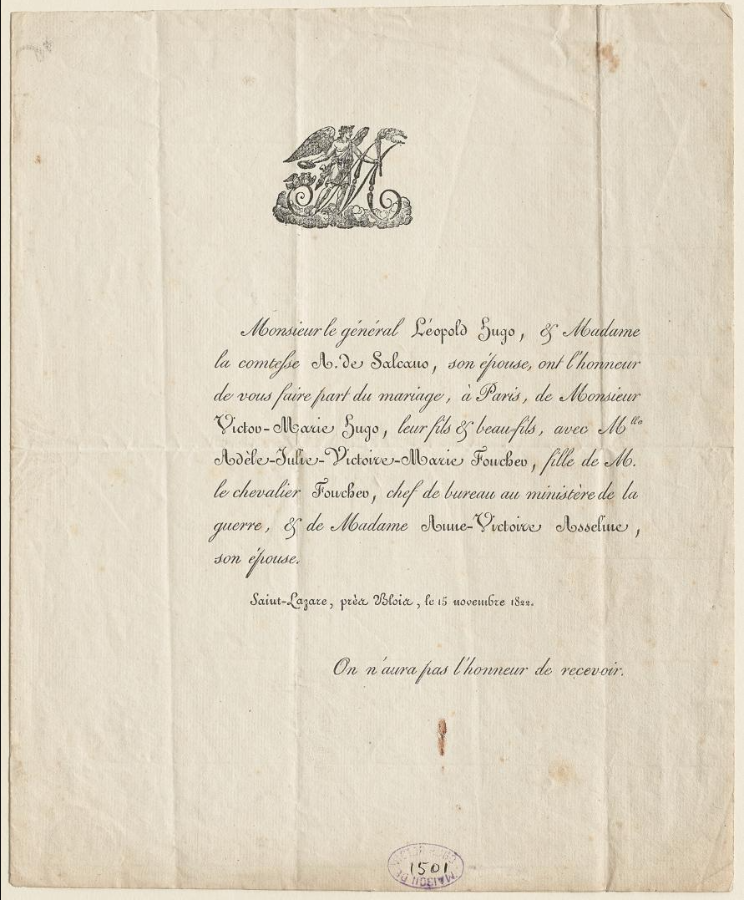 Monsieur le général Léopold Hugo, & Madame
la comtesse A. de Salcano, son épouse, ont l'honneur
de vous faire part du mariage, à Paris, de Monsieur
Victor-Marie Hugo, leur fils & beau-fils, avec M^lle
Adèle-Julie-Victoire-Marie Foucher, fille de M.
le chevalier Foucher, chef de bureau au ministère de la
guerre, & de Madame Anne-Victoire Asseline,
son épouse.
Saint-Lazare, près Blois, le 15 novembre 1822.
On n'aura pas l'honneur de recevoir.
VICTOR HUGO
1501
MAISON DE